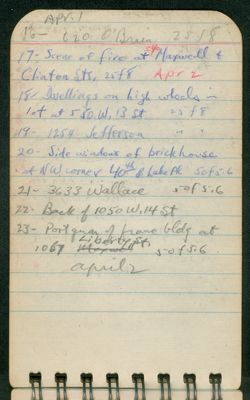 APR. 1
16- 610 O'Brien 25 f 8
17- Scene of fire at Maxwell &
Clinton Sts, 25 f 8 Apr 2
18- Dwellings on high wheels in
lot at 550 W. 13 St 25 f 8
19- 1254 Jefferson " "
20- Side windows of brick house
at NW corner 40th & Lake Pk 50 f 5.6
21- 3633 Wallace 50 f 5.6
22- Back of 1050 W. 14 St
23- Part of frame bldg at
Liberty St,
1067 Maxwell 50 f 5.6
april 2